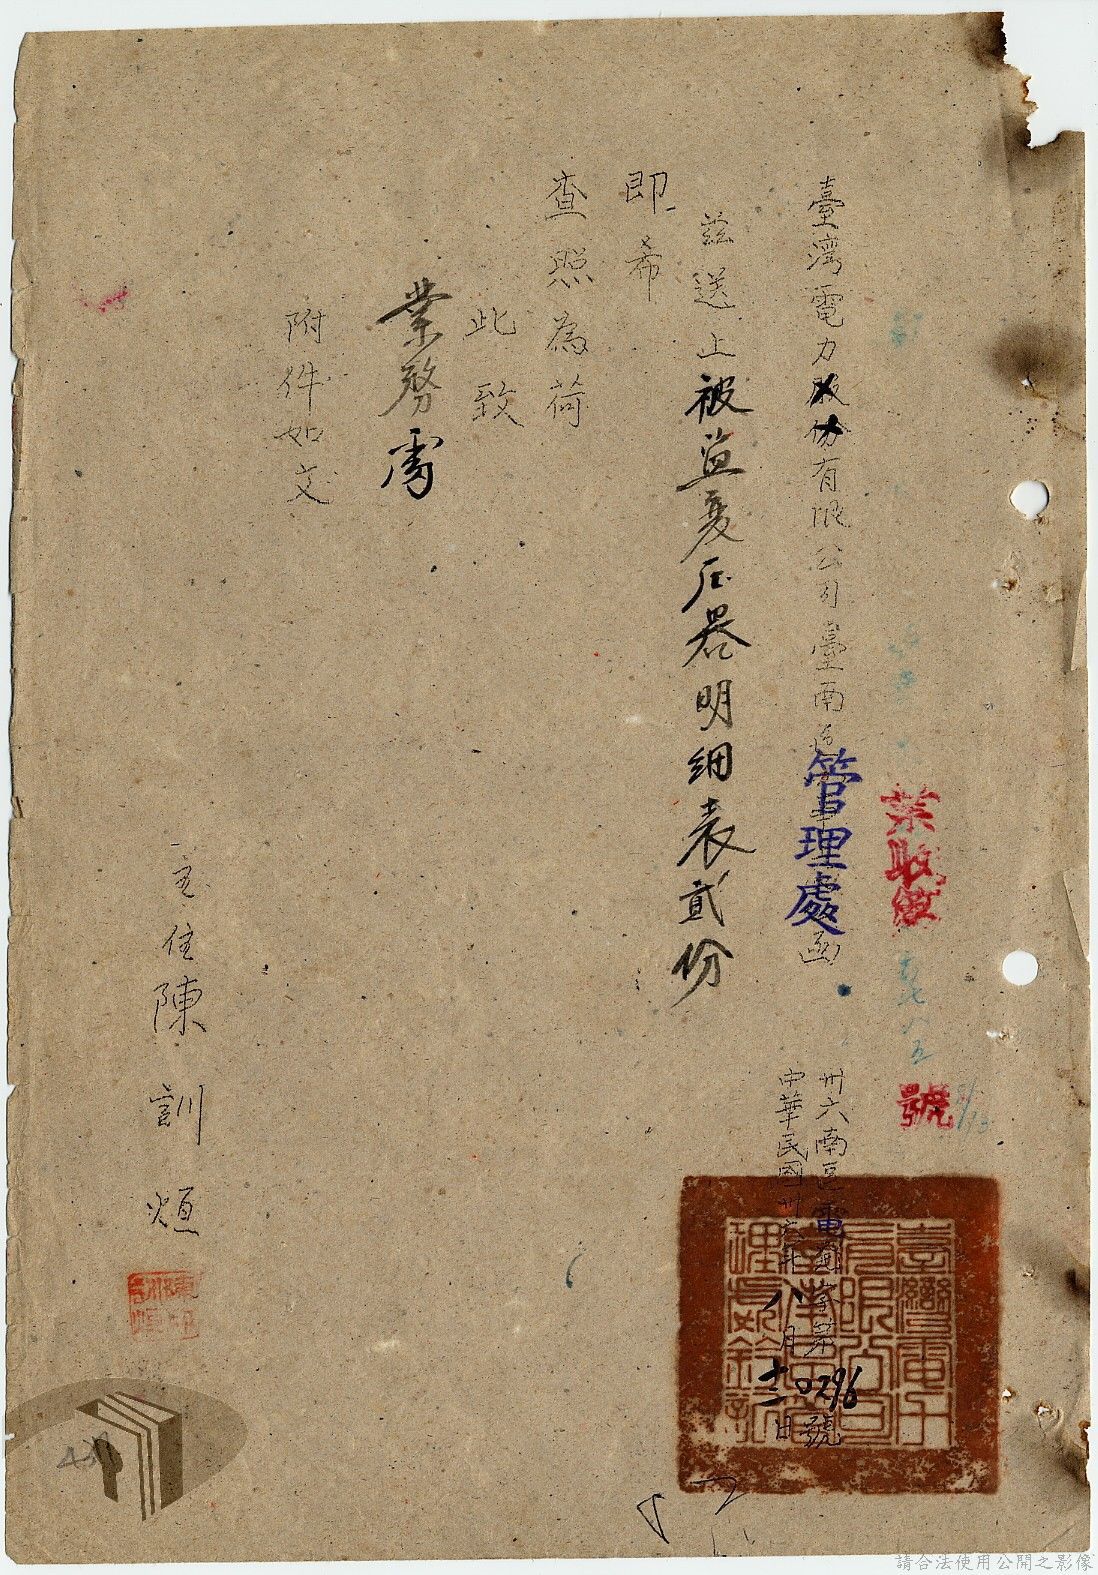 業收第
號
臺湾電力股份有限公司臺南
管理處
函
卅六南區電
字第
0296
號
中華民國卅六年八月十二日
茲送上被盜变压器明細表貳份
即希
查照為荷
此致
業務處
附件如文
主任陳訓烜
臺灣電力
有限公司
請合法使用公開之影像